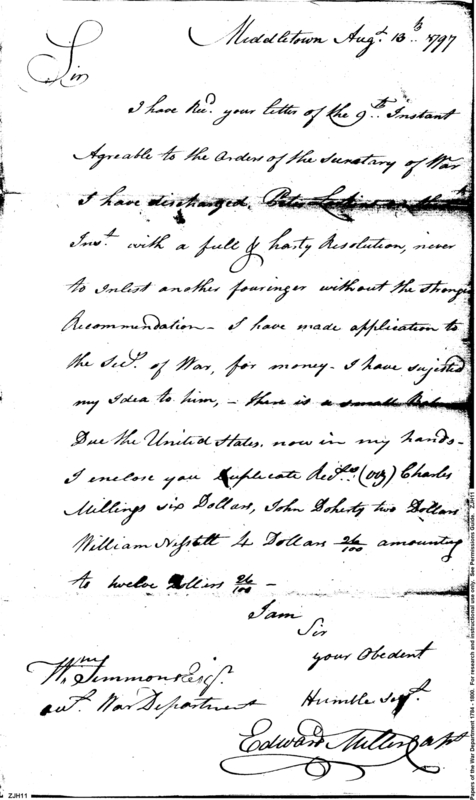 Middletown Augt. 13th. 1797
Sir
I have Recd. your letter of the 9th. Instant
Agreable to the orders of the Secretary of War
I have discharged Peter on the
Inst. with a full & harty Resolution, never
to Inlist another fouringer without the strongest
Recommendation - I have made application to
the Secy. of War, for money - I have sujested
my Idea to him, - there is a small
Due the United States. now in my hands -
I enclose you Duplicate Recpts. (viz) Charles
Millings six Dollars, John Doherty two Dollars
William 4 Dollars 26/100 amounting
to twelve Dollars 26/100 -
I am
Sir
your Obedent
Humble Sert.
Edward Miller Capt
Wm Simmons Esqr.
War Department
ZJH11
Papers of the War Department 1784 - 1800. For research and instructional use only. See Permissions Guide. ZJH11